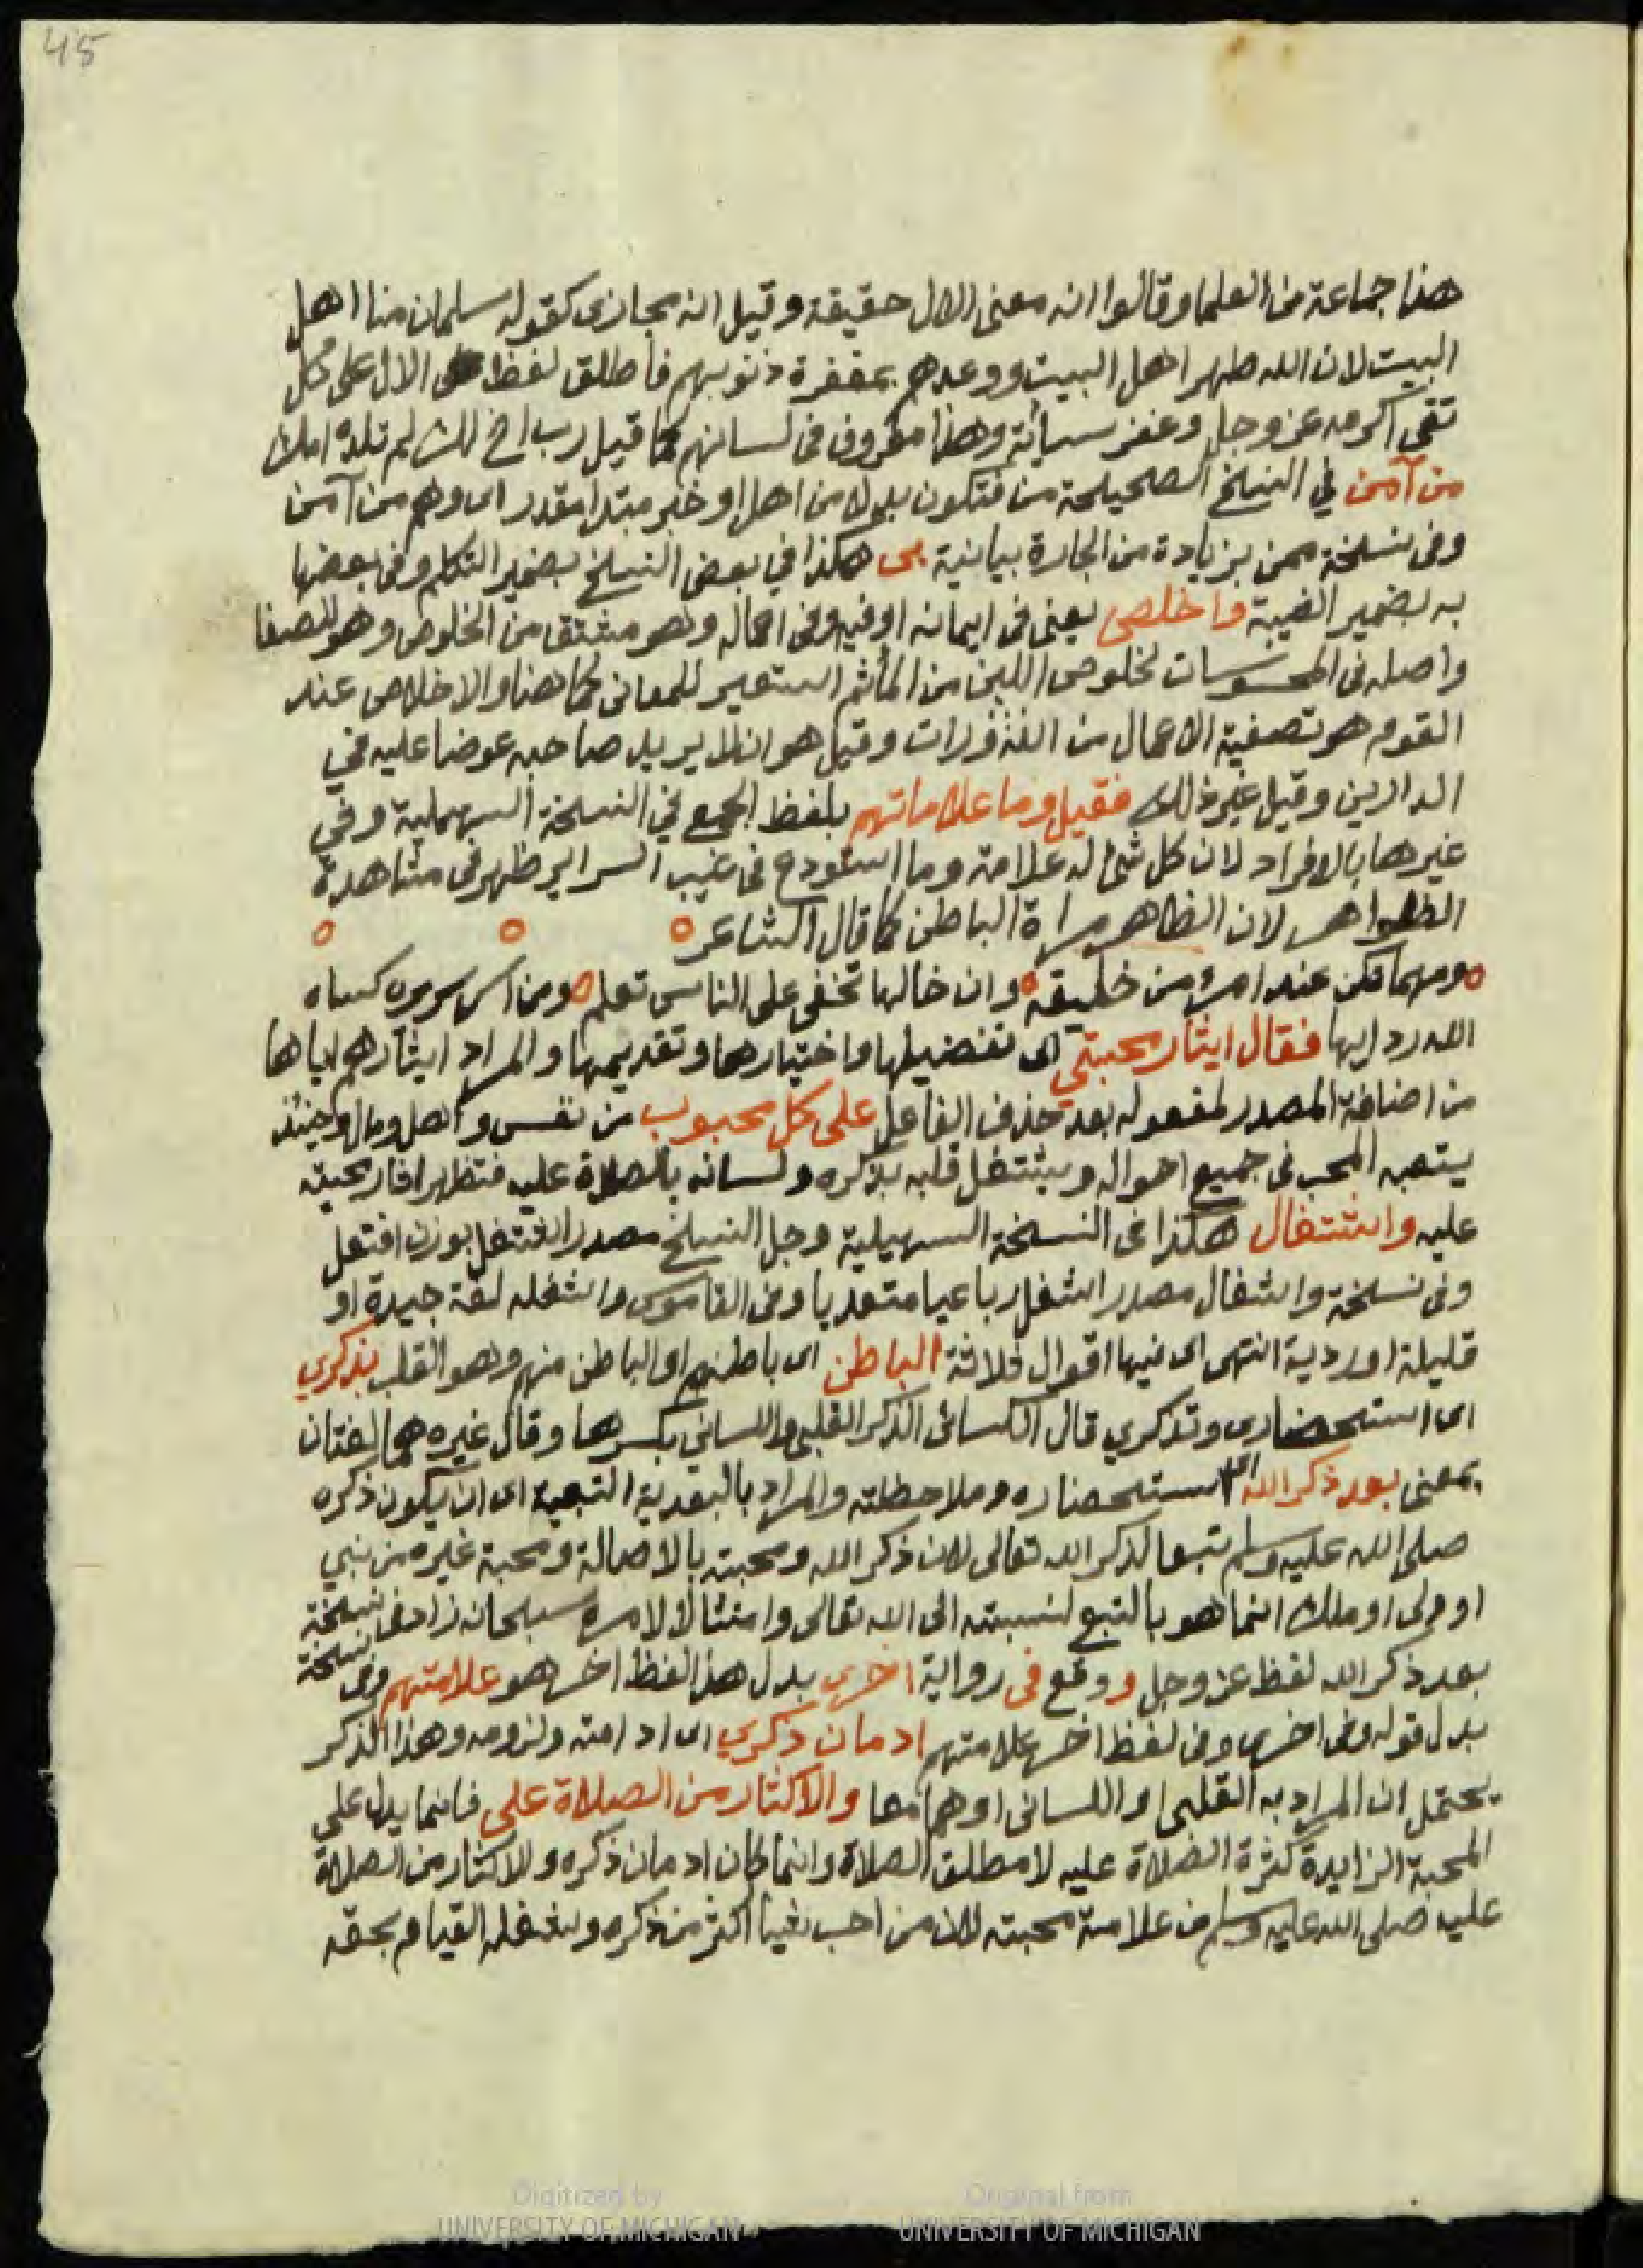 45
هذا جماعة من العلما وقالوا انه معنى الال حقيقة وقيل انه مجازى كقوله سلمان منا اهل
البيت لان الله طهر اهل البيت ووعدهم بمغفرة ذنوبهم فأطلق لفظ الال على كل
تقى اكرمه عز وجل وغفر سيأته وهذا معروف فى لسانهم كما قيل رب اخ لك لم تلده امك
من آمن في النسخ الصحيحة من فتكون بدلا من اهل او خبر مبتدا مقدر اى وهم من آمن
وفى نسخة ممن بزيادة من الجارة بيانية بى هكذا في بعض النسخ بضمير التكلم وفى بعضها
به بضمير الغيبة واخلص يعنى فى ايمانه او فيه وفى اعماله وهو مشتق من الخلوص وهو الصفا
واصله فى المحسوسات كخلوص اللبن من استعير للمعانى كما هنا والاخلاص عند
القوم هو تصفية الاعمال من وقيل هو ان لا يريد صاحبه عوضا عليه في
الدارين وقيل غير ذلك فقيل وما علاماتهم بلفظ الجمع في النسخة السهيلية وفي
غيرها بالافراد لان كل شئ له علامة وما استودع فى غيب السراير ظهر فى مشاهدة
الظواهر لان الظاهر مراة الباطن كما قال الشاعر
ومهما تكن عند امرئ من خليقة وان خالها تخفى على الناس تعلم ومن اسر سريره كساه
الله رداءها فقال ايثار محبتي اى تفضيلها واختيارها وتقديمها والمراد ايثارهم اياها
من اضافة المصدر لمفعوله بعد حذف الفاعل على كل محبوب من نفس واهل ومال وحينئذ
المحب فى جميع احواله ويشتغل قلبه بذكره ولسانه بالصلاة عليه فتظهر اثار محبته
عليه واشتغال هكذا فى النسخة السهيلية وجل النسخ مصدر اشتغل بوزن افتعل
وفى نسخة واشغال مصدر اشغل رباعيا متعديا وفى القاموس واشغله لغة جيدة او
قليلة او ردية انتهى اى فيها اقوال ثلاثة الباطن اى باطنهم او الباطن منهم وهو القلب بذكري
اى استحضارى وتذكري قال الكسائى الذكر القلبى واللساني بكسرها وقال غيره هما لغتان
بمعنى بعد ذكر الله اى استحضاره وملاحظته والمراد بالبعدية التبعية اى ان يكون ذكره
صلى الله عليه وسلم تبعا لذكر الله تعالى لان ذكر الله ومحبته بالاصالة ومحبة غيره من نبي
او ولى او ملك انما هو بالتبع لنسبته الى الله تعالى وامتثالا لامره سبحانه زاد فى نسخة
بعد ذكر الله لفظ عز وجل ووقع فى رواية اخرى بدل هذا لفظ اخر هو علامتهم وفى نسخة
بدل قوله وفى اخرى وفى لفظ اخر علامتهم ادمان ذكري اى ادامته ولزومه وهذا الذكر
يحتمل ان المراد به القلبى او اللسانى او هما معا والاكثار من الصلاة على فانما يدل على
المحبة الزايدة كثرة الصلاة عليه لا مطلق الصلاة وانما كان ادمان ذكره والاكثار من الصلاة
عليه صلى الله عليه وسلم من علامة محبته لان من احب شيأ اكثر من ذكره القيام بحقه
Digitized by
UNIVERSITY OF MICHIGAN
Original from
UNIVERSITY OF MICHIGAN